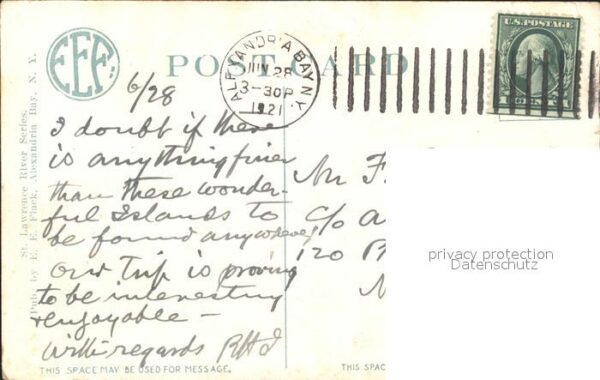 EEF
POST CARD
ALEXANDRIA BAY N.Y.
JUN 28
3-30P
1921
U.S. POSTAGE
St. Lawrence River Series.
Pub. by E. E. Fluck, Alexandria Bay, N. Y.
6/28
I doubt if there
is anything finer
than these wonder-
ful Islands to
be found anywhere,
Our Trip is proving
to be interesting
+ enjoyable –
With regards
Mr F.
c/o a
120
privacy protection
Datenschutz
THIS SPACE MAY BE USED FOR MESSAGE.
THIS SPAC